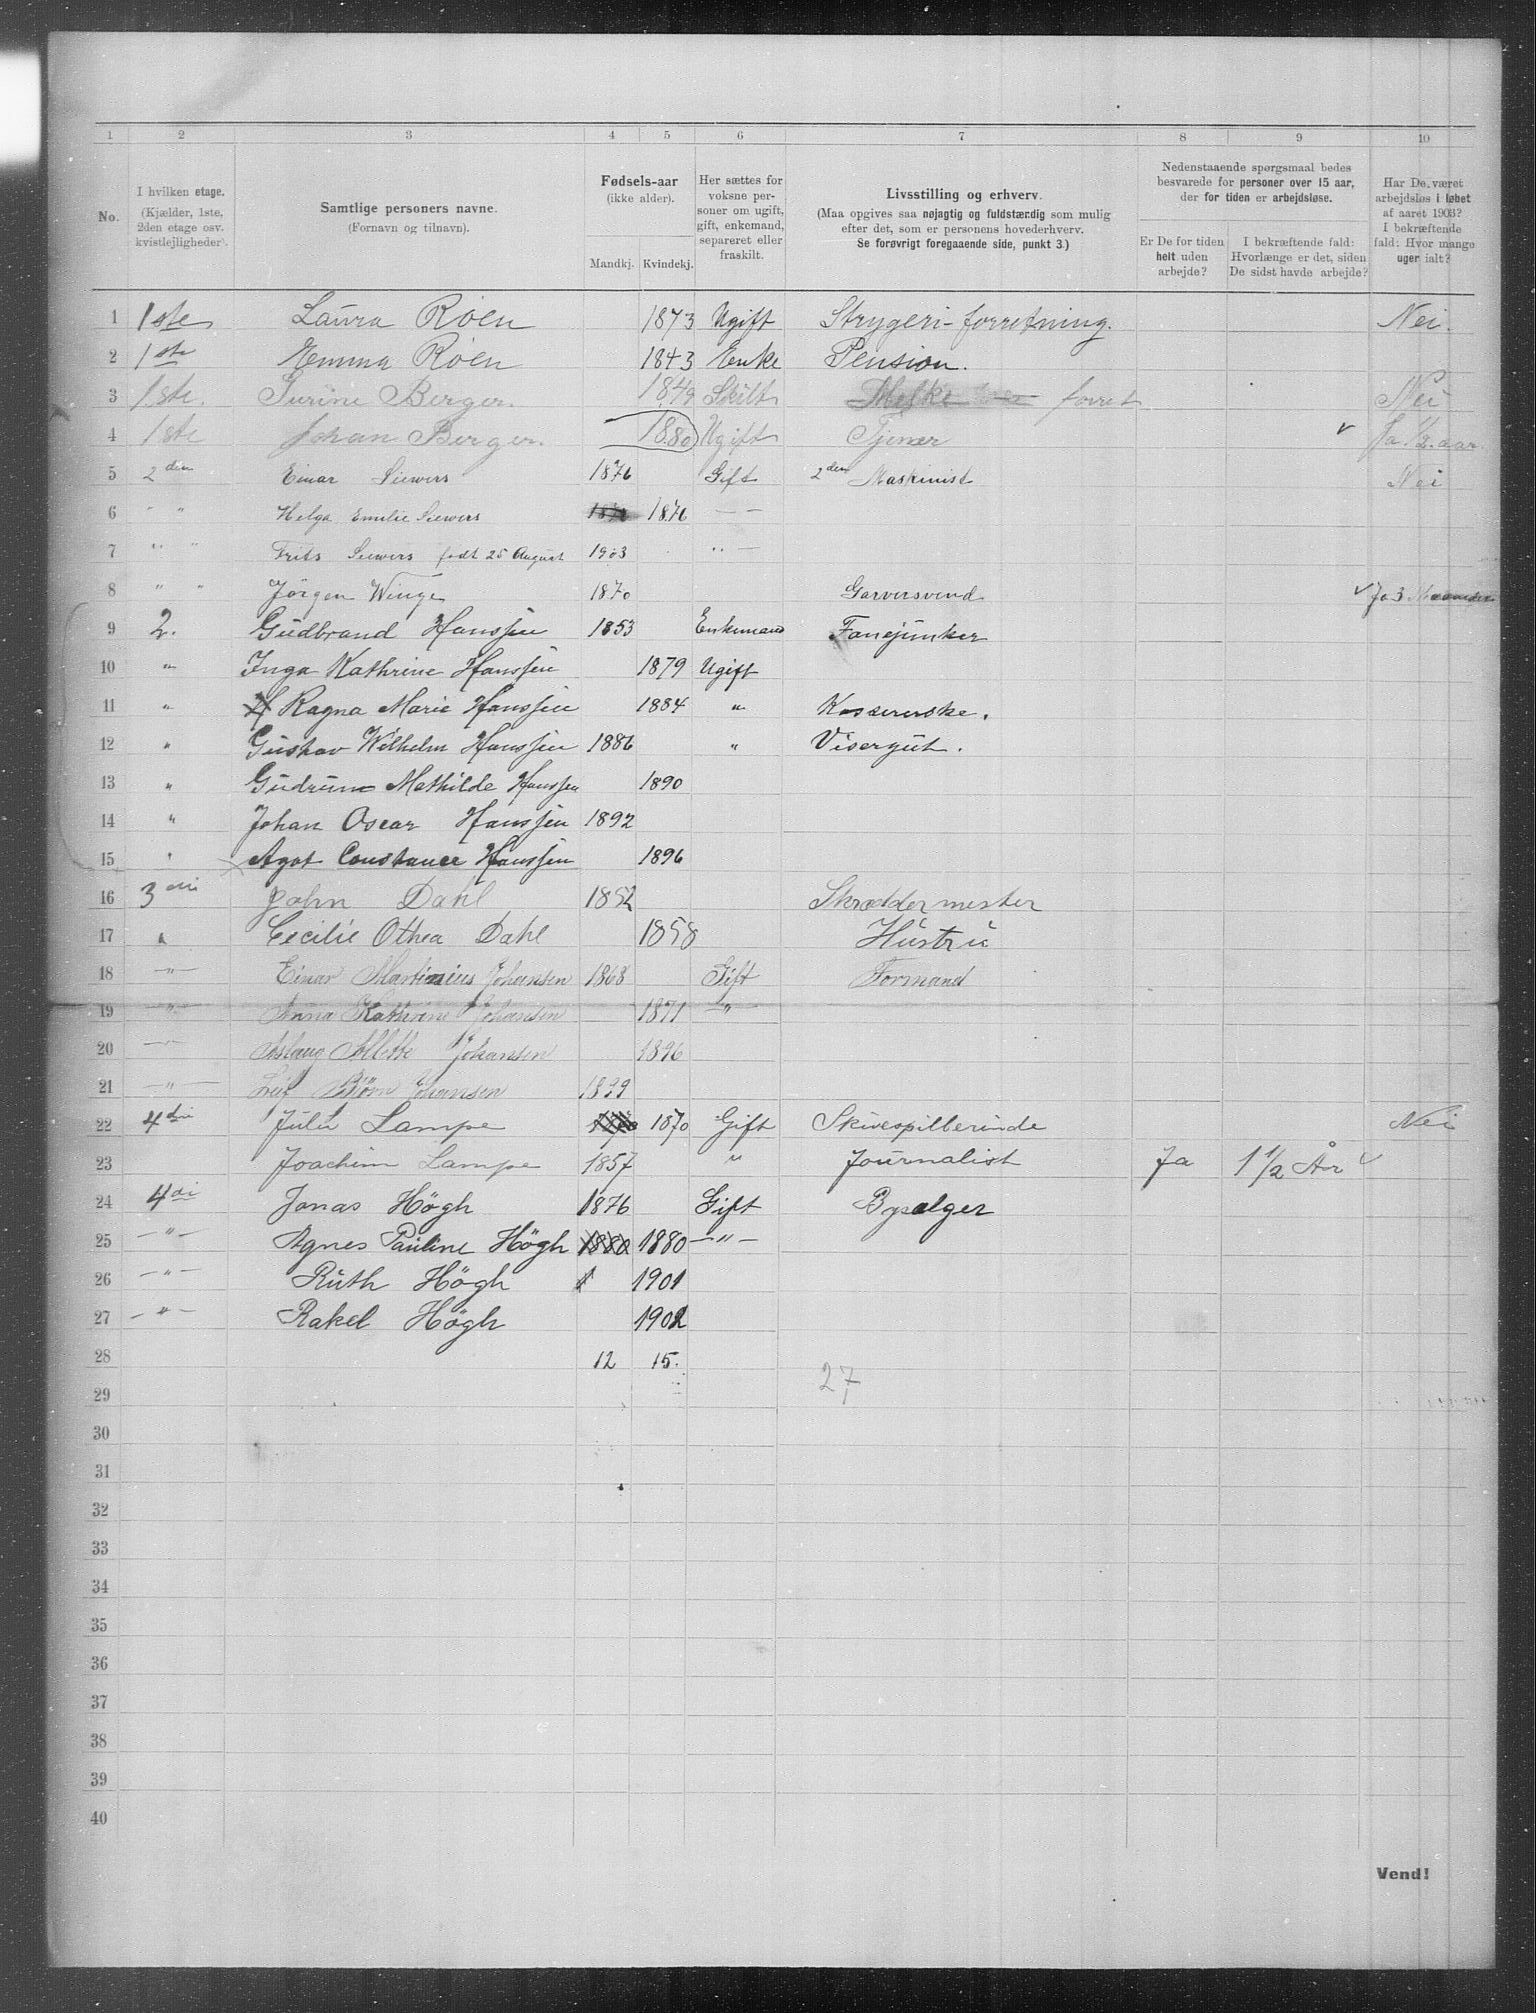 1 2 3 4 5 6 7 8 9 10
No.
I hvilken etage.
(Kjælder, 1ste,
2den etage osv.
kvistlejligheder).
Samtlige personers navne.
(Fornavn og tilnavn).
Fødsels-aar
(ikke alder).
Mandkj. Kvindekj.
Her sættes for
voksne per-
soner om ugift,
gift, enkemand,
separeret eller
fraskilt.
Livsstilling og erhverv.
(Maa opgives saa nøjagtig og fuldstændig som mulig
efter det, som er personens hovederhverv.
Se forøvrigt foregaaende side, punkt 3.)
Nedenstaaende spørgsmaal bedes
besvarede for personer over 15 aar,
der for tiden er arbejdsløse.
Er De for tiden
helt uden
arbejde?
I bekræftende fald:
Hvorlænge er det, siden
De sidst havde arbejde?
Har De været
arbejdsløs i løbet
af aaret 1903?
I bekræftende
fald: Hvor mange
uger ialt?
1 1ste Laura Röen 1873 Ugift Strygeri-forretning. Nei.
2 1ste Emma Röen 1843 Enke Pension.
3 1ste. Turine Berger. 1849 Skilt forret Nei
4 1ste Johan Berger. 1880 Ugift Tjener ✓ Ja 1/2 aar
5 2den Einar Siewers 1876 Gift 2den Maskinist Nei
6 " " Helga Emilie Siewers 1876 — —
7 " " Frits Siewers født 25 August 1903 " —
8 " " Jørgen Winge 1870 Garversvend ✓ Ja 3 Maaneder
9 2. Gudbrand Hanssen 1853 Enkemand Fanejunker
10 " Inga Kathrine Hanssen 1879 Ugift
11 " Ragna Marie Hanssen 1884 " Kassererske.
12 " Gustav Wilhelm Hanssen 1886 " Visergut.
13 " Gudrun Mathilde Hanssen 1890
14 " Johan Oscar Hanssen 1892
15 " Agot Constance Hanssen 1896
16 3die John Dahl 1852 Skræddermester
17 " Cecilie Othea Dahl 1858 Hustru
18 —"— Einar Martinius Johansen 1868 Gift Formand
19 —"— Anna Kathrine Johansen 1871 —"—
20 —"— Aslaug Johansen 1896
21 —"— Leif Björn Johansen 1899
22 4die Juli Lampe 1870 Gift Skuespillerinde Nei
23 Joachim Lampe 1857 " Journalist Ja 1 1/2 År ✓
24 4di Jonas Högh 1876 Gift Bysælger
25 —"— Agnes Pauline Högh 1880 1880 —"—
26 —"— Ruth Högh 1901
27 —"— Rakel Högh 1902
28 12 15.
27
29
30
31
32
33
34
35
36
37
38
39
40
Vend!